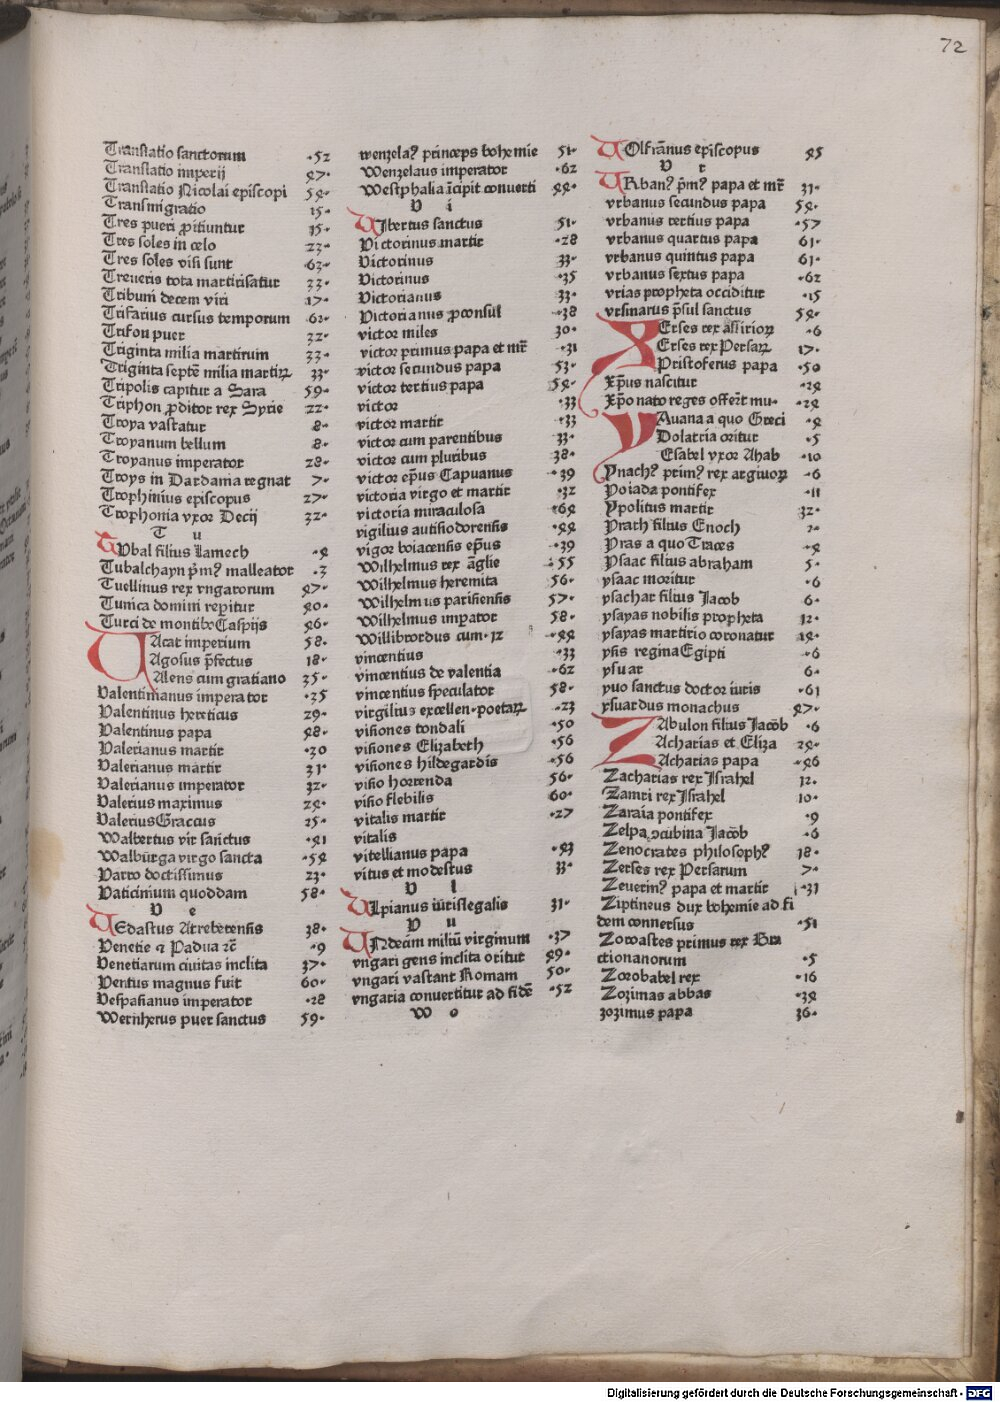 72
Translatio sanctorum .52
Translatio imperij 47.
Translatio Nicolai episcopi 54.
Transmigratio 15.
Tres pueri ꝓitiuntur 15.
Tres soles in celo 23.
Tres soles visi sunt .63.
Treueris tota martirisatur 33.
Tribuni decem viri 17.
Trifarius cursus temporum 62.
Trifon puer 32.
Triginta milia martirum 33.
Triginta septē milia martiꝝ 33.
Tripolis capitur a Sara 59.
Triphon ꝓditor rex Syrie 22.
Troya vastatur 8.
Troyanum bellum 8.
Troyanus imperator 28.
Troys in Dardama regnat 7.
Trophinius episcopus 27.
Trophonia vxor Decij 32.
T u
TVbal filius Lamech .4
Tubalchayn pͥmꝰ malleator .3
Tuellinus rex vngarorum 47.
Tunica domini reꝑitur 40.
Turci de montibꝰ Caspijs 46.
VAcat imperium 58.
Agosus p̄fectus 18.
Alens cum gratiano 35.
Valentinianus imperator .35
Valentinus hereticus 29.
Valentinus papa 48.
Valerianus martir .30
Valerianus martir 31.
Valerianus imperator 32.
Valerius maximus 24.
Valerius Graccus 25.
Walbertus vir sanctus .41
Walburga virgo sancta .54
Varro doctissimus 23.
Vaticinium quoddam 58.
V e
VEdastus Atrebetensis 38.
Venetie ⁊ Padua ⁊c̄ .9
Venetiarum ciuitas inclita 37.
Ventus magnus fuit 60.
Vespasianus imperator .28
Wernherus puer sanctus 59.
wenzelaꝰ princeps bohemie 51.
Wenzelaus imperator .62
Westphalia īcipit conuerti 44.
V i
VIbertus sanctus 51.
Victorinus martir .28
Victorinus 33.
Victorinus .35
Victorianus 33.
Victorianus ꝓconsul .38
victor miles 30.
victor primus papa et mr̄ .31
victor secundus papa 53.
victor tertius papa 54.
victor .33
victor martir .33
victor cum parentibus 33.
victor cum pluribus 38.
victor ep̄us Capuanus .39
victoria virgo et martir .32
victoria miraculosa .64
vigilius autisiodorensis .44
vigor boiacensis ep̄us .39
Wilhelmus rex āglie .55
Wilhelmus heremita 56.
Wilhelmus parisiensis 57.
Wilhelmus imꝑator 58.
Willibrordus cum.12 .44
vincentius .33
vincentius de valentia .62
vincentius speculator 58.
virgilius excellen.poetaꝝ .23
visiones tondali .50
visiones Elizabeth .56
visiones hildegardis .56
visio horrenda 56.
visio flebilis 60.
vitalis martir .27
vitalis
vitellianus papa .43
vitus et modestus 33.
V l
VLpianus iūrislegalis 31.
V u
VNdecim miliū virginum .37
vngari gens inclita oritur 49.
vngari vastant Romam 50.
vngaria conuertitur ad fidē .52
W o
VOlfrānus episcopus 45
V r
VRbanꝰ pͥmꝰ papa et mr̄ 31.
vrbanus secundus papa 54.
vrbanus tertius papa .57
vrbanus quartus papa 61.
vrbanus quintus papa 61.
vrbanus sextus papa .62
vrias propheta occiditur .15
vrsmarus p̄sul sanctus 54.
XErses rex assirioꝝ .6
Erses rex Persaꝝ 17.
Pristoferus papa .50
Xp̄us nascitur .24
Xp̄o nato reges offerr̄t mu. .24
YAuana a quo Greci .4
Dolatria oritur .5
Esabel vxor Ahab .10
Ynachꝰ primꝰ rex argiuoꝝ .6
Yoiada pontifex .11
Ypolitus martir 32.
Yrath filius Enoch 2.
Yras a quo Traces .4
Ysaac filius abraham 5.
ysaac moritur .6
ysachar filius Jacob 6.
ysayas nobilis propheta 12.
ysayas martirio coronatur 14.
ysis regina Egipti .6
ysuar 6.
yuo sanctus doctor iuris .61
ysuardus monachus 47.
ZAbulon filius Jacob .6
Acharias et Eliza 24.
Acharias papa .46
Zacharias rex Israhel 12.
Zamri rex Israhel 10.
Zaraia pontifex .9
Zelpa ꝯcubina Jacob .6
Zenocrates philosophꝰ 18.
Zerses rex Persarum 7.
Zeuerinꝰ papa et martir .31
Ziptineus dux bohemie ad fi
dem conuersus .51
Zoroastes primus rex Bra
ctionanorum .5
Zorobabel rex .16
Zozimas abbas .34
zozimus papa 36.
Digitalisierung gefördert durch die Deutsche Forschungsgemeinschaft - DFG